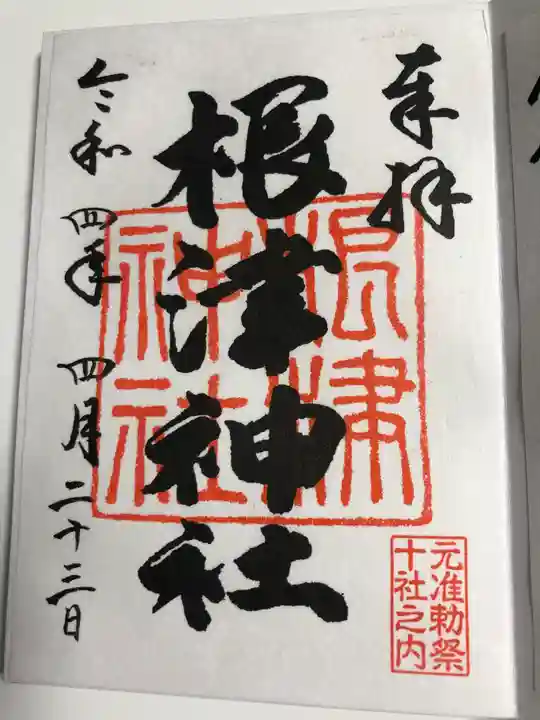 奉拝
根津神社
根津神社
元准勅祭
十社之内
令和四年四月二十三日